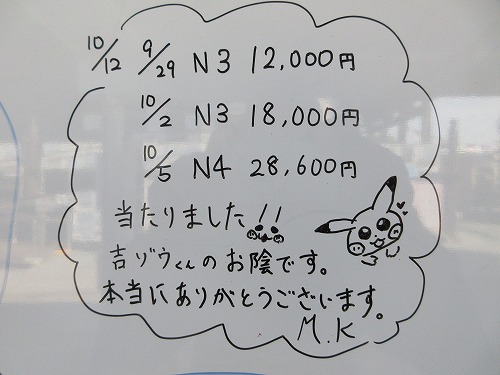 10/12 9/29 N3 12,000円
10/2 N3 18,000円
10/5 N4 28,600円
当たりました!!
吉ゾウくんのお陰です。
本当にありがとうございます。
M.K